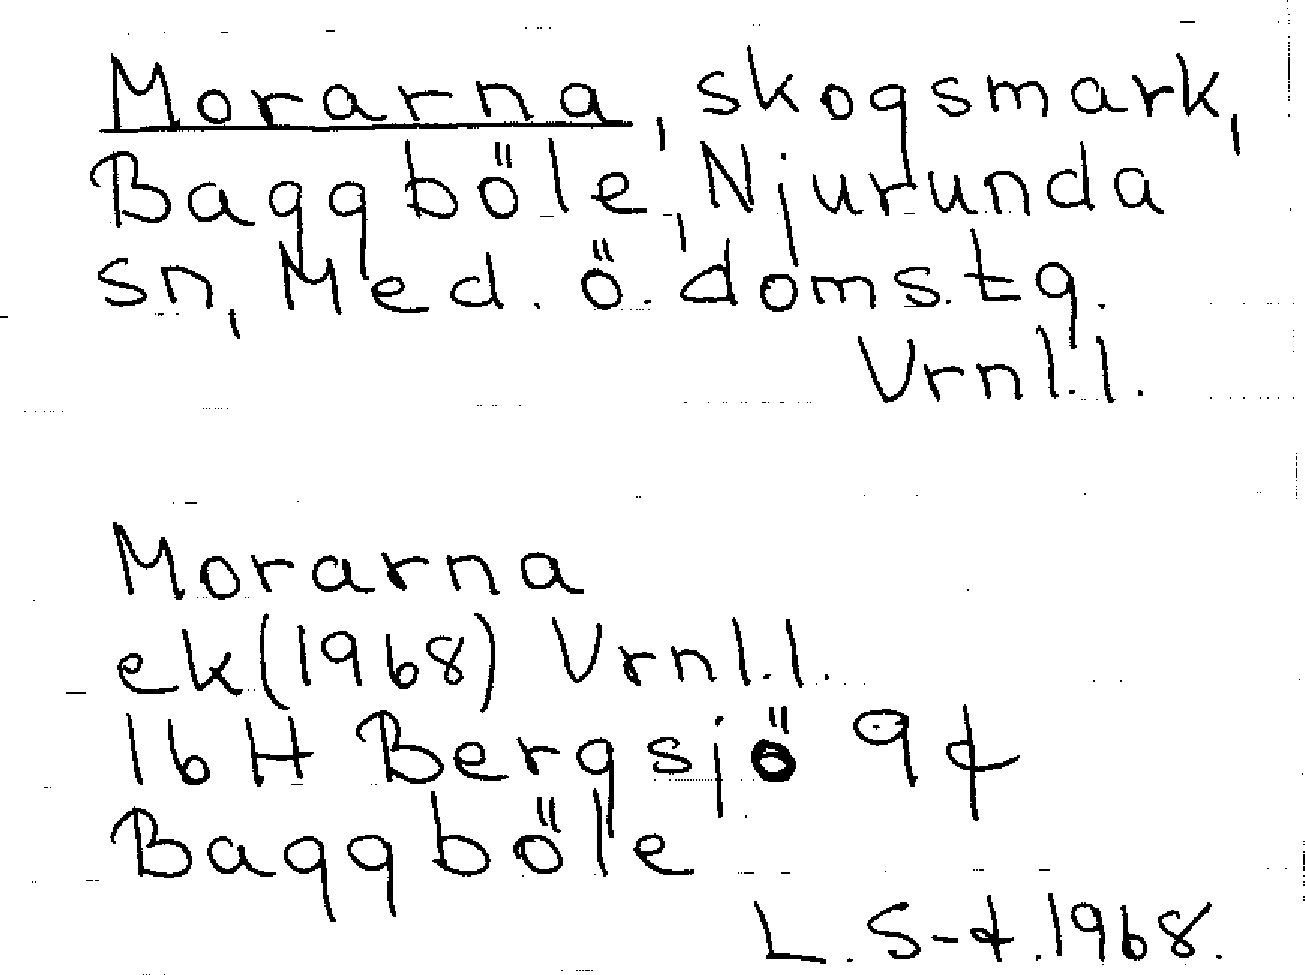 Morarna, skogsmark,
Baggböle, Njurunda
sn, Med. ö. doms.tg.
Vrnl.l.
Morarna
ek (1968) Vrnl.l.
16 H Bergsjö 9 f
Baggböle
L. S-t. 1968.